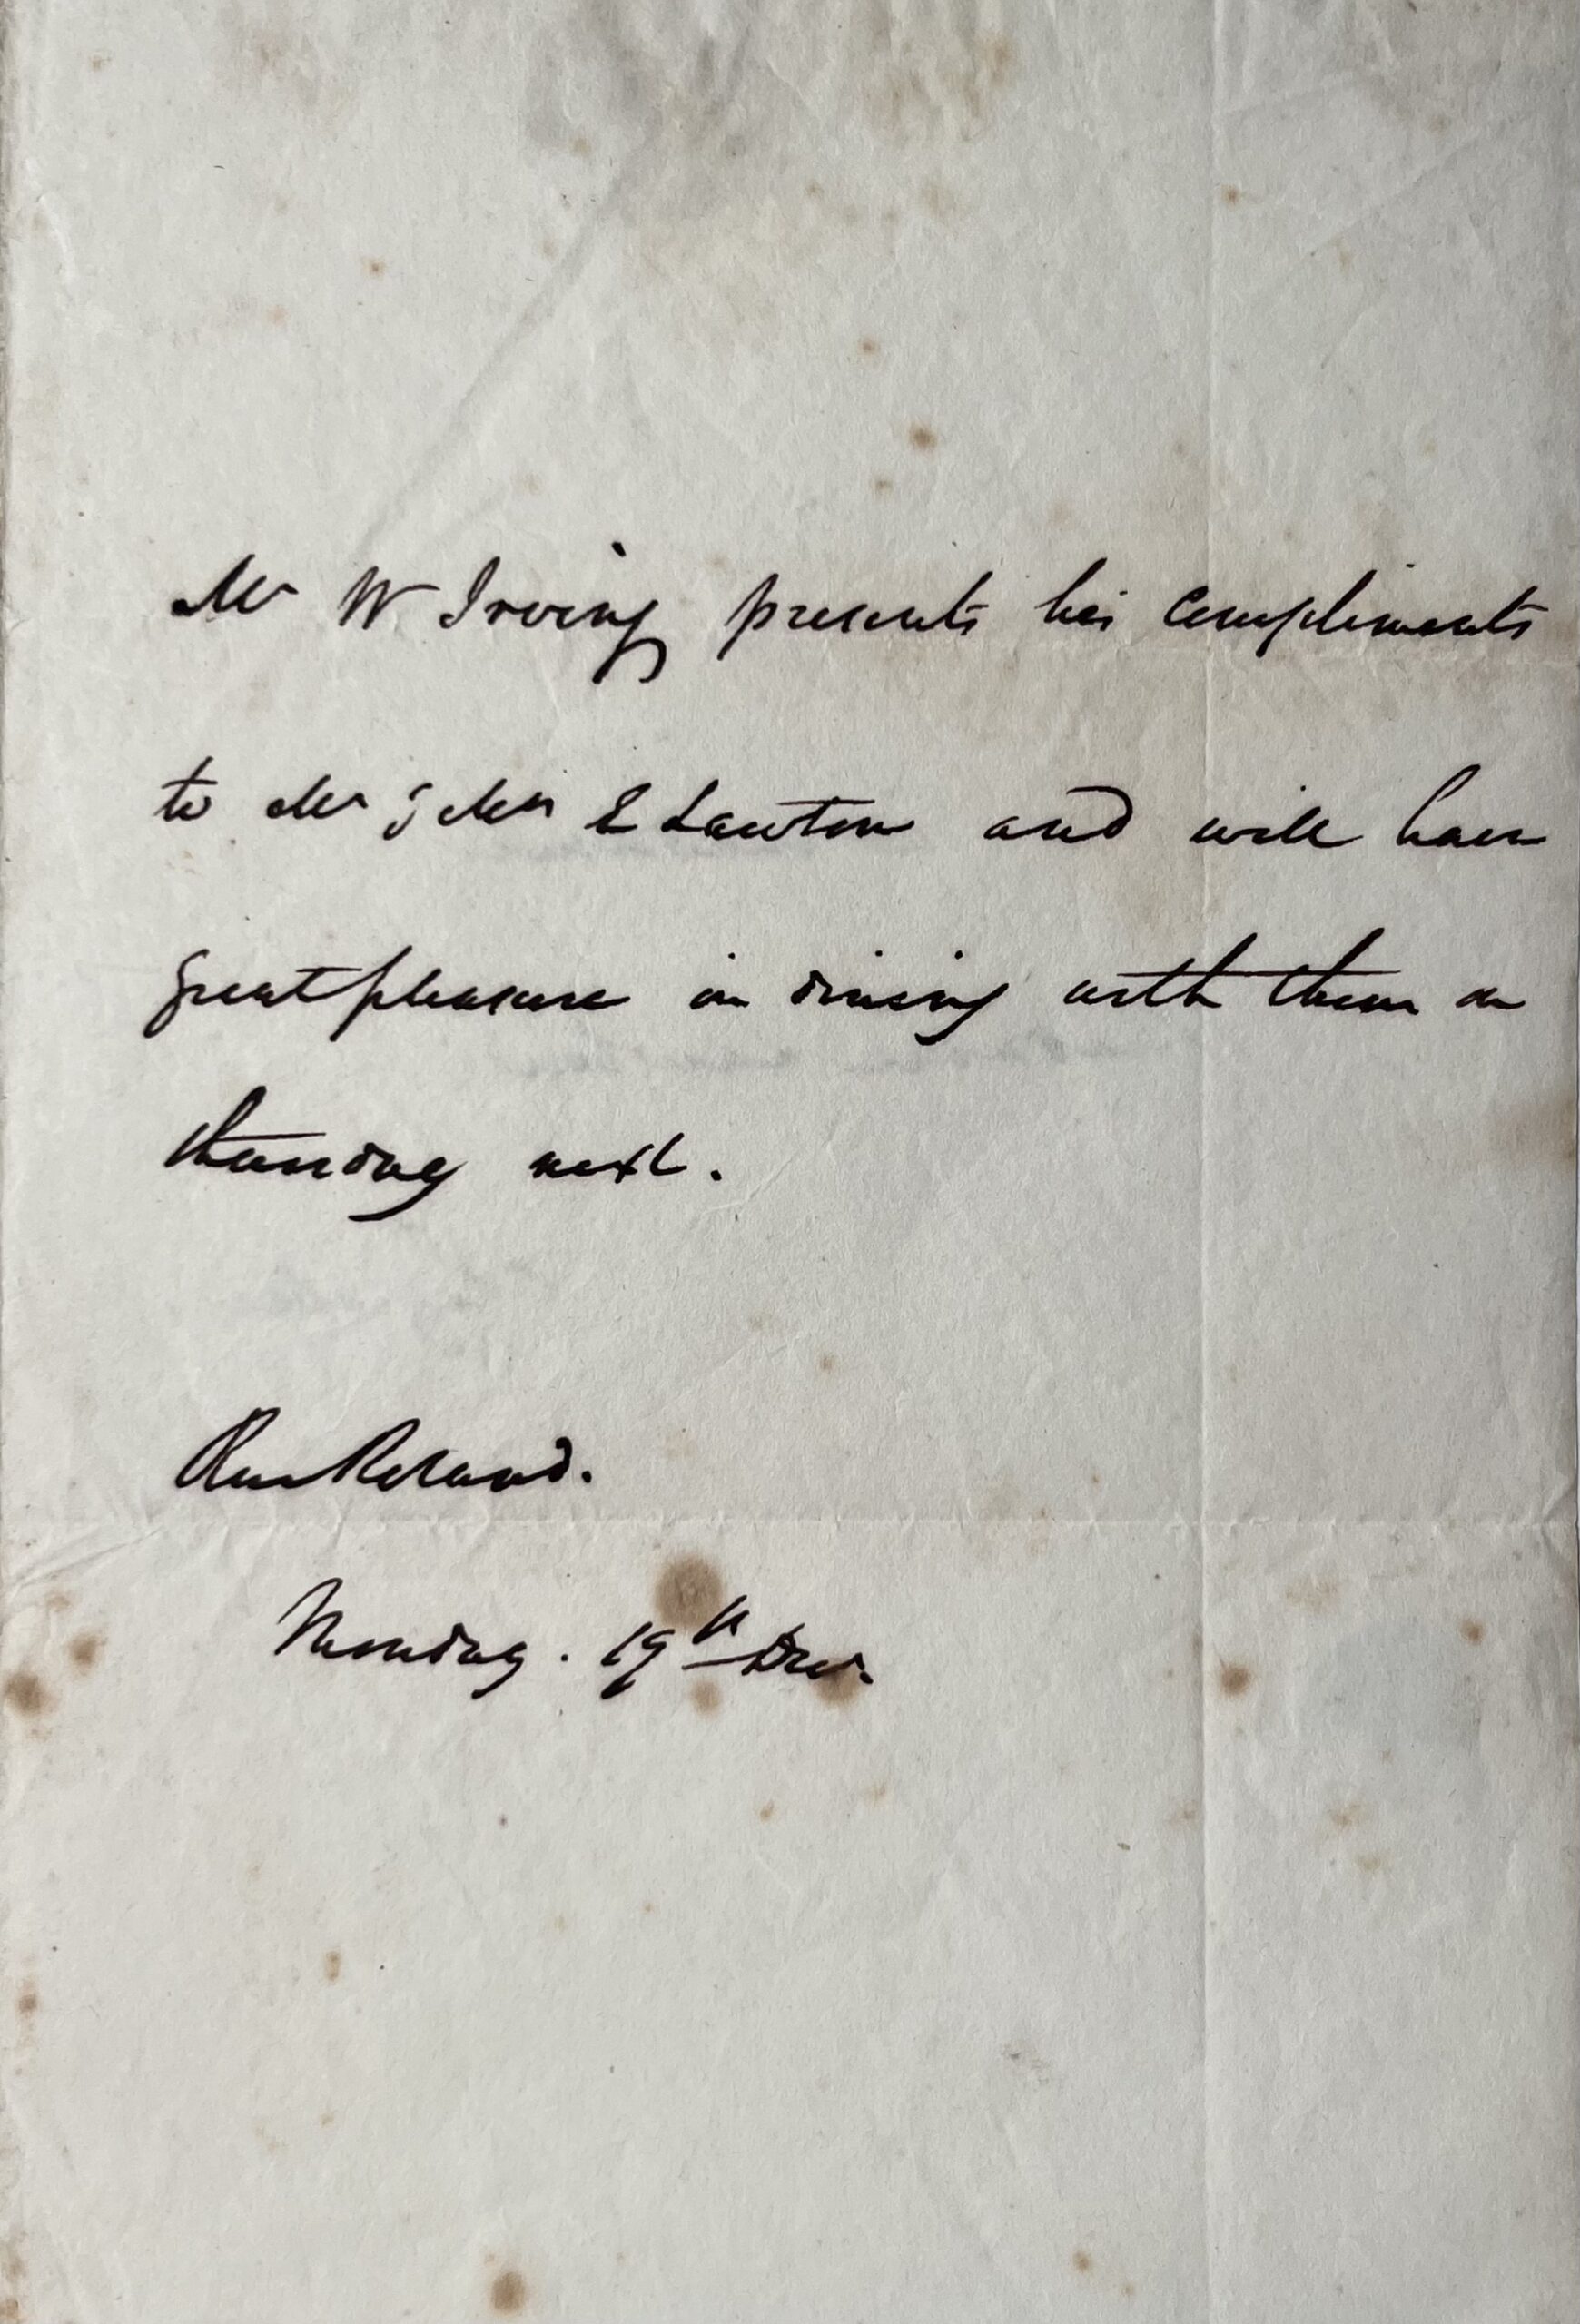 Mr W Irving presents his compliments
to Mr & Mrs E Lawton and will have
great pleasure in dining with them on
thursday next.
Rue Roland.
Monday. 19th Dec.